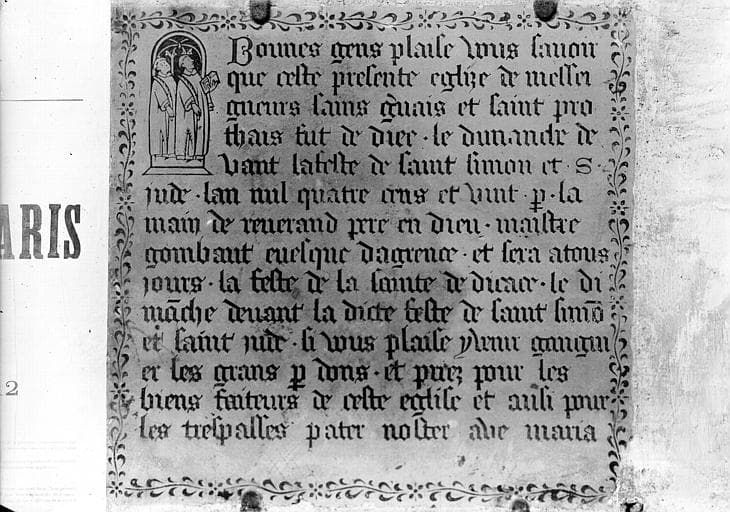 ARIS
2
Bonnes gens plaise vous savoir
que ceste presente eglize de messei
gneurs sains gvais et saint pro
thais fut dediee · le dimanche de
vant la feste de saint simon et · s ·
jude · lan mil quatre cens et vint · p · la
main de reverand pere en dieu · maistre
gombaut evesque dagrence · et sera a tous
jours · la feste de la sainte dedicace · le di
māche devant la dicte feste de saint simō
et saint jude · si vous plaise y venir gaingn
er les grans pdons · et priez pour les
biens faiteurs de ceste eglise et ausi pour
les trespasses pater noster ave maria